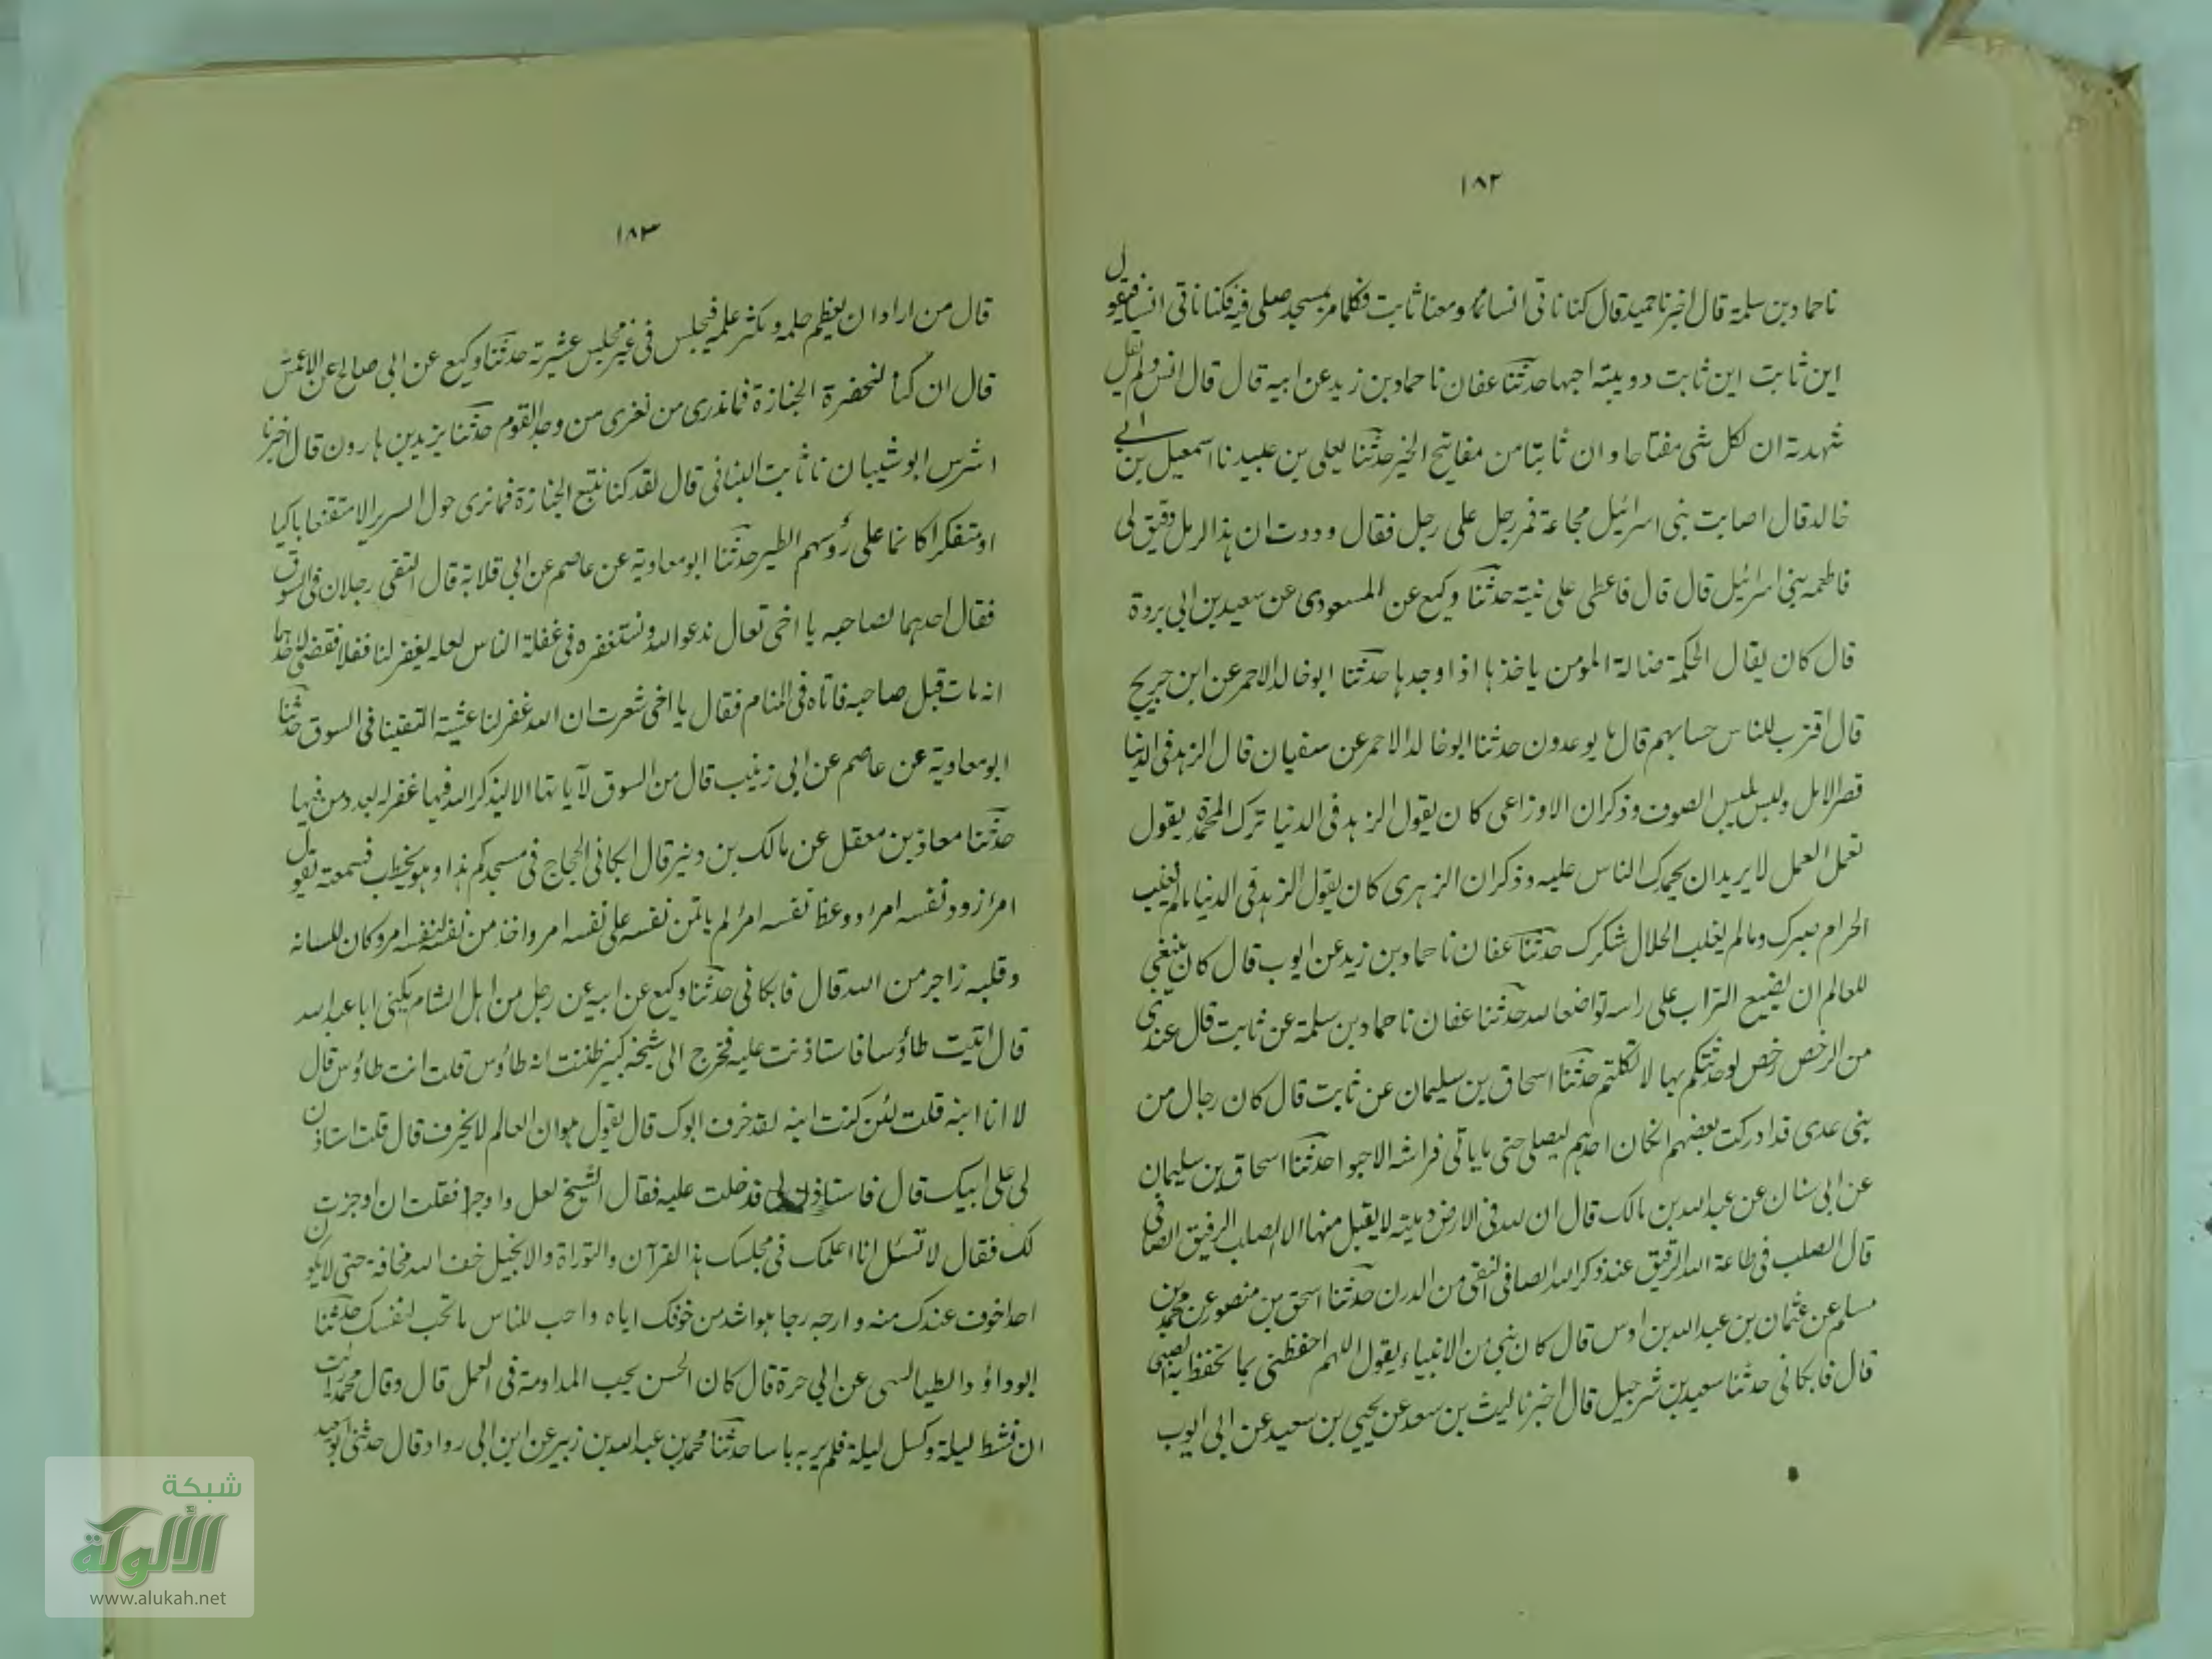 ١٨٢
نا حماد بن سلمة قال اخبرنا حميد قال كنا ناتى انسا ومعنا ثابت فكلما مر بمسجد صلى فيه فكنا ناتى انسا فيقول
اين ثابت اين ثابت دويبته احبها حدثنا عفان نا حماد بن زيد عن ابيه قال قال انس ولم يقل
شهدته ان لكل شى مفتاحا وان ثابتا من مفاتيح الخير حدثنا يعلى بن عبيد نا اسمعيل بن ابى
خالد قال اصابت بنى اسرائيل مجاعة فمر رجل على رجل فقال وددت ان هذا الرمل دقيق لى
فاطعمه بنى اسرائيل قال قال فاعطى على نيته حدثنا وكيع عن المسعودى عن سعيد بن ابى بردة
قال كان يقال الحكمة ضالة المومن ياخذها اذا وجدها حدثنا ابو خالد الاحمر عن ابن جريج
قال اقترب للناس حسابهم قال ما يوعدون حدثنا ابو خالد الاحمر عن سفيان قال الزهد فى الدنيا
قصر الامل وليس بلبس الصوف وذكر ان الاوزاعى كان يقول الزهد فى الدنيا ترك المحمدة يقول
تعمل العمل لا يريد ان يحمدك الناس عليه وذكر ان الزهرى كان يقول الزهد فى الدنيا ما لم يغلب
الحرام صبرك وما لم يغلب الحلال شكرك حدثنا عفان نا حماد بن زيد عن ايوب قال كان ينبغى
للعالم ان يضع التراب على راسه تواضعا لله حدثنا عفان نا حماد بن سلمة عن ثابت قال عندى
من الرخص رخص لو حدثتكم بها لاتكلتم حدثنا اسحاق بن سليمان عن ثابت قال كان رجال من
بنى عدى قد ادركت بعضهم ان كان احدهم ليصلى حتى ما ياتى فراشه الا حبوا حدثنا اسحاق بن سليمان
عن ابى سنان عن عبد الله بن مالك قال ان لله فى الارض لا يقبل منها الا الصلب الرقيق الصافى
قال الصلب فى طاعة الله الرقيق عند ذكر الله الصافى النقى من الدرن حدثنا اسحق بن منصور عن محمد بن
مسلم عن عثمان بن عبد الله بن اوس قال كان نبى من الانبياء يقول اللهم احفظنى بما تحفظ به الصبى
قال فابكانى حدثنا سعيد بن شرحبيل قال اخبرنا ليث بن سعد عن يحيى بن سعيد عن ابى ايوب
١٨٣
قال من اراد ان يعظم حلمه ويكثر علمه فيجلس فى غير مجلس عشيرته حدثنا وكيع عن ابى صالح عن الاعمش
قال ان كنا لنحضر الجنازة فما ندرى من نعزى من وجد القوم حدثنا يزيد بن هارون قال اخبرنا
اشرس ابو شيبان نا ثابت البنانى قال لقد كنا نتبع الجنازة فما نرى حول السرير الا متقنعا باكيا
او متفكرا كانما على رؤسهم الطير حدثنا ابو معاوية عن عاصم عن ابى قلابة قال التقى رجلان فى السوق
فقال احدهما لصاحبه يا اخى تعال ندعو الله ونستغفره فى غفلة الناس لعله يغفر لنا ففعلا فقضى لاحدهما
انه مات قبل صاحبه فاتاه فى المنام فقال يا اخى شعرت ان الله غفر لنا عشية التقينا فى السوق حدثنا
ابو معاوية عن عاصم عن ابى زينب قال من السوق لا ياتها الا ليذكر الله فيها غفر له بعدد من فيها
حدثنا معاذ بن معقل عن مالك بن دينر قال ابكانى الحجاج فى مسجدكم هذا وهو يخطب فسمعته يقول
امرٔ زود نفسه امرٔ وعظ نفسه امرٔ لم ياتمن نفسه على نفسه امرٔ واخذ من نفسه لنفسه امرٔ وكان للسانه
وقلبه زاجر من الله قال فابكانى حدثنا وكيع عن ابيه عن رجل من اهل الشام يكنى ابا عبد الله
قال اتيت طاؤسا فاستاذنت عليه فخرج الى شيخ كبير ظننت انه طاؤس قلت انت طاؤس قال
لا انا ابنه قلت لئن كنت ابنه لقد خرف ابوك قال يقول هو ان العالم لا يخرف قال قلت استاذن
لى على ابيك قال فاستاذن لى فدخلت عليه فقال الشيخ سل واوجز فقلت ان اوجزت
لك فقال لا تسئل انا اعلمك فى مجلسك هذا القرآن والتوراة والانجيل خف الله مخافة حتى لا يكون
احد اخوف عندك منه وارجه رجا هو اشد من خوفك اياه واحب للناس ما تحب لنفسك حدثنا
ابو داؤد الطيالسى عن ابى حرة قال كان الحسن يحب المداومة فى العمل قال وقال محمد
ان نشط ليلة وكسل ليلة فلم ير به باسا حدثنا محمد بن عبد الله بن زبير عن ابن ابى رواد قال حدثنى
شبكة
الألوكة
www.alukah.net